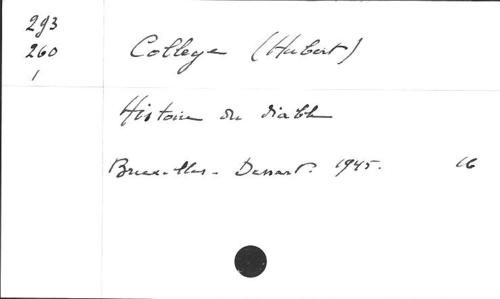 293
260
1
Colleye (Hubert)
Histoire du diable
Bruxelles - Dessart. 1945. 16